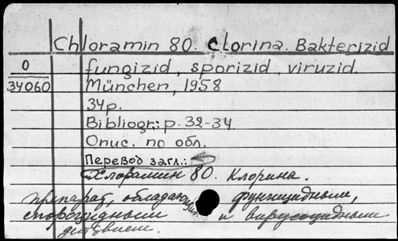 Chloramin 80. Clorina. Bakterizid
0 fungizid, sporizid, viruzid.
34060 München, 1958
34p.
Bibliogr.: p. 32-34.
Опис. по обл.
Перевод загл.:
Хлорамин 80. Клорина.
препарат, обладающий фунгицидным,
спороцидным и вирусоцидным
действием.